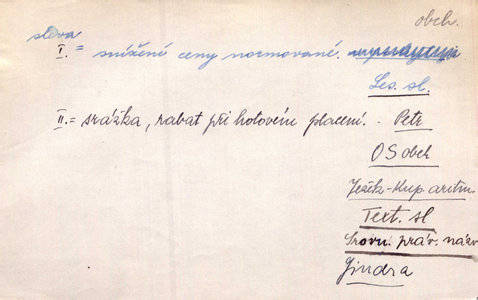 obch.
sleva
I. = snížení ceny normované.
Les. sl.
II. = srážka, rabat při hotovém placení. - Petr
OS obch
Ješek-Kup. aritm.
Text. sl
Srovn. práv. názv.
Jindra